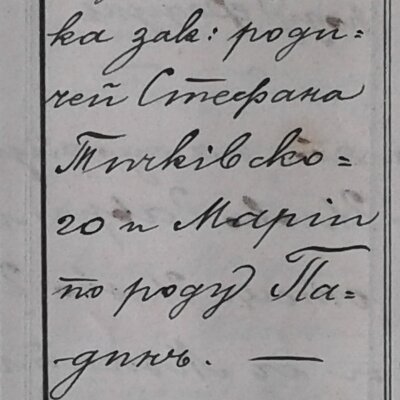 ка зак: роди=
чей Стефана
Тичківско=
го и Маріи
по роду Па=
динъ. —